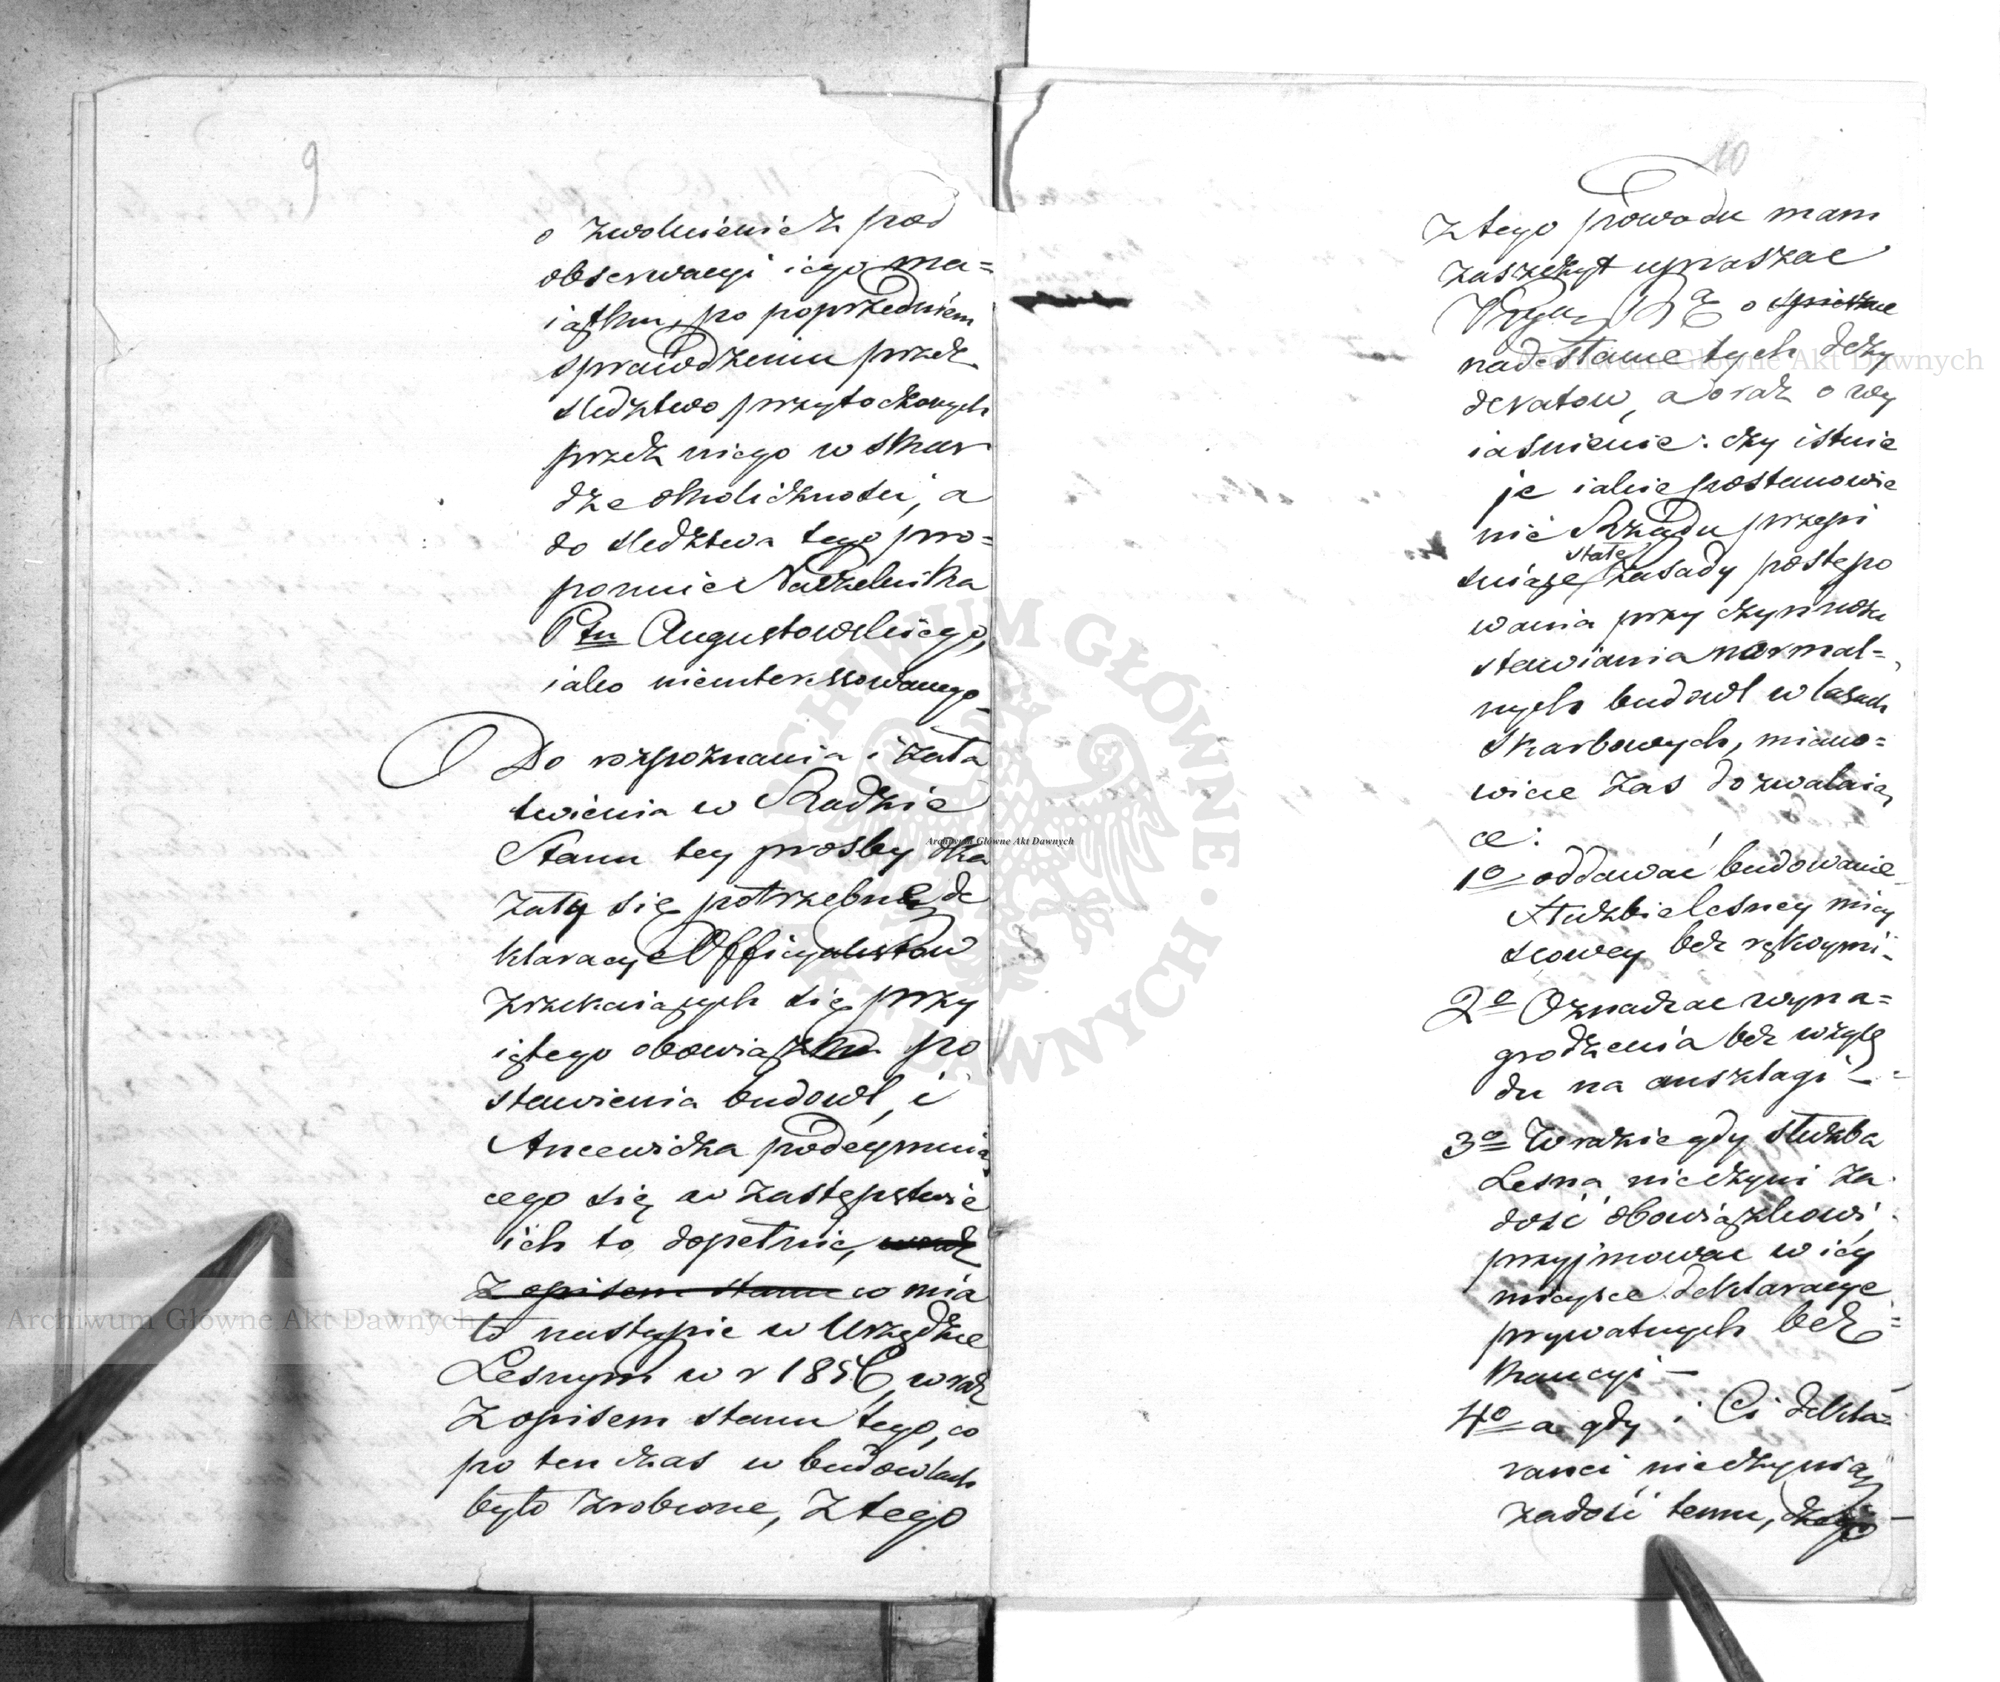 9
o zwolnienie z pod
obserwacyi iego ma=
iątku, po poprzedniém
sprawdzeniu przez
sledztwo przytoczonych
przez niego w skar
dze okoliczności, a
do sledztwa tego pro=
ponuie Naczelnika
Ptu Augustowskiego,
iako nieinteressowanego_
Do rozpoznania i zała
twienia w Radzie
Stanu tey prosby oka
zały się potrzebne de
klaracye Officyalistów
zrzekaiących się przy
iętego obowiązku po
stawienia budowl, i
Ancewicza podeymuią
cego się w zastępstwie
ich to dopełnić,
z opisem stanu co mia
ło nastąpić w Urzędzie
Lesnym w r 1856, wraz
z opisem stanu tego, co
po ten czas w budowlach
było zrobione, z tego
10
z tego powodu mam
zaszczyt upraszać
o spieszne
nadesłanie tych dezy
deratow, a oraz o wy
iaśnienie: czy istnie
je iakie postanowie
nie Rządu przepi
stałe
suiące zasady postępo
wania przy czynności
stawiania normal=
nych budowl w lasach
skarbowych, miano=
wicie zas dozwalaią
ce:
1o oddawać budowanie
służbie lesney miey
scowey bez rękoymi-
2o Oznaczać wyna=
grodzenia bez wzglę
du na anszlagi -
3o W razie gdy służba
Lesna nieczyni za
dość obowiązkowi,
przyjmować w iey
mieysce deklaracye
prywatnych bez
kaucyi —
4o a gdy i Ci dekla=
ranci nieczynią
zadość temu, czego
Archiwum Główne Akt Dawnych
Archiwum Główne Akt Dawnych
Archiwum Główne Akt Dawnych
ARCHIWUM GŁÓWNE AKT DAWNYCH